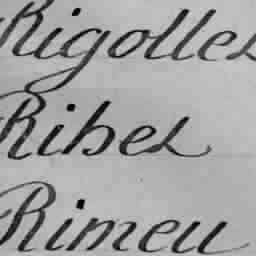 Rigolles
Ribes
Rimeu